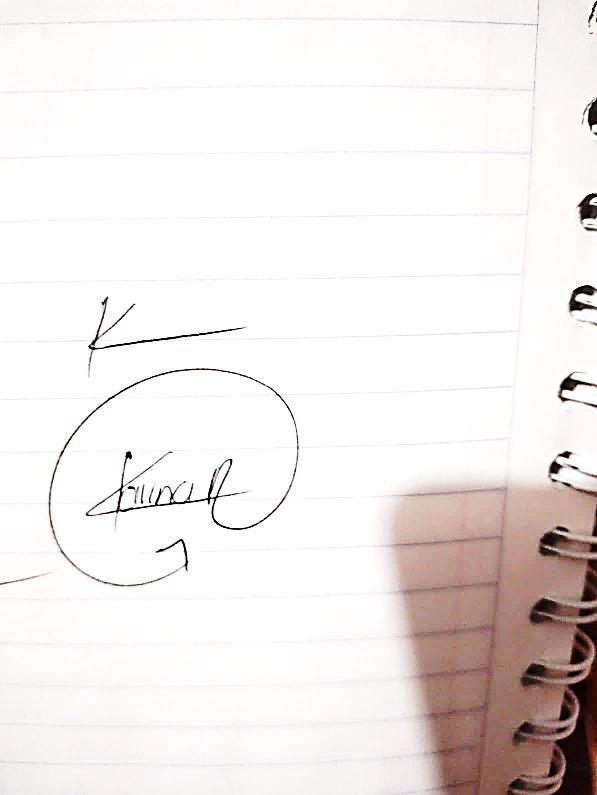 K
Kumar